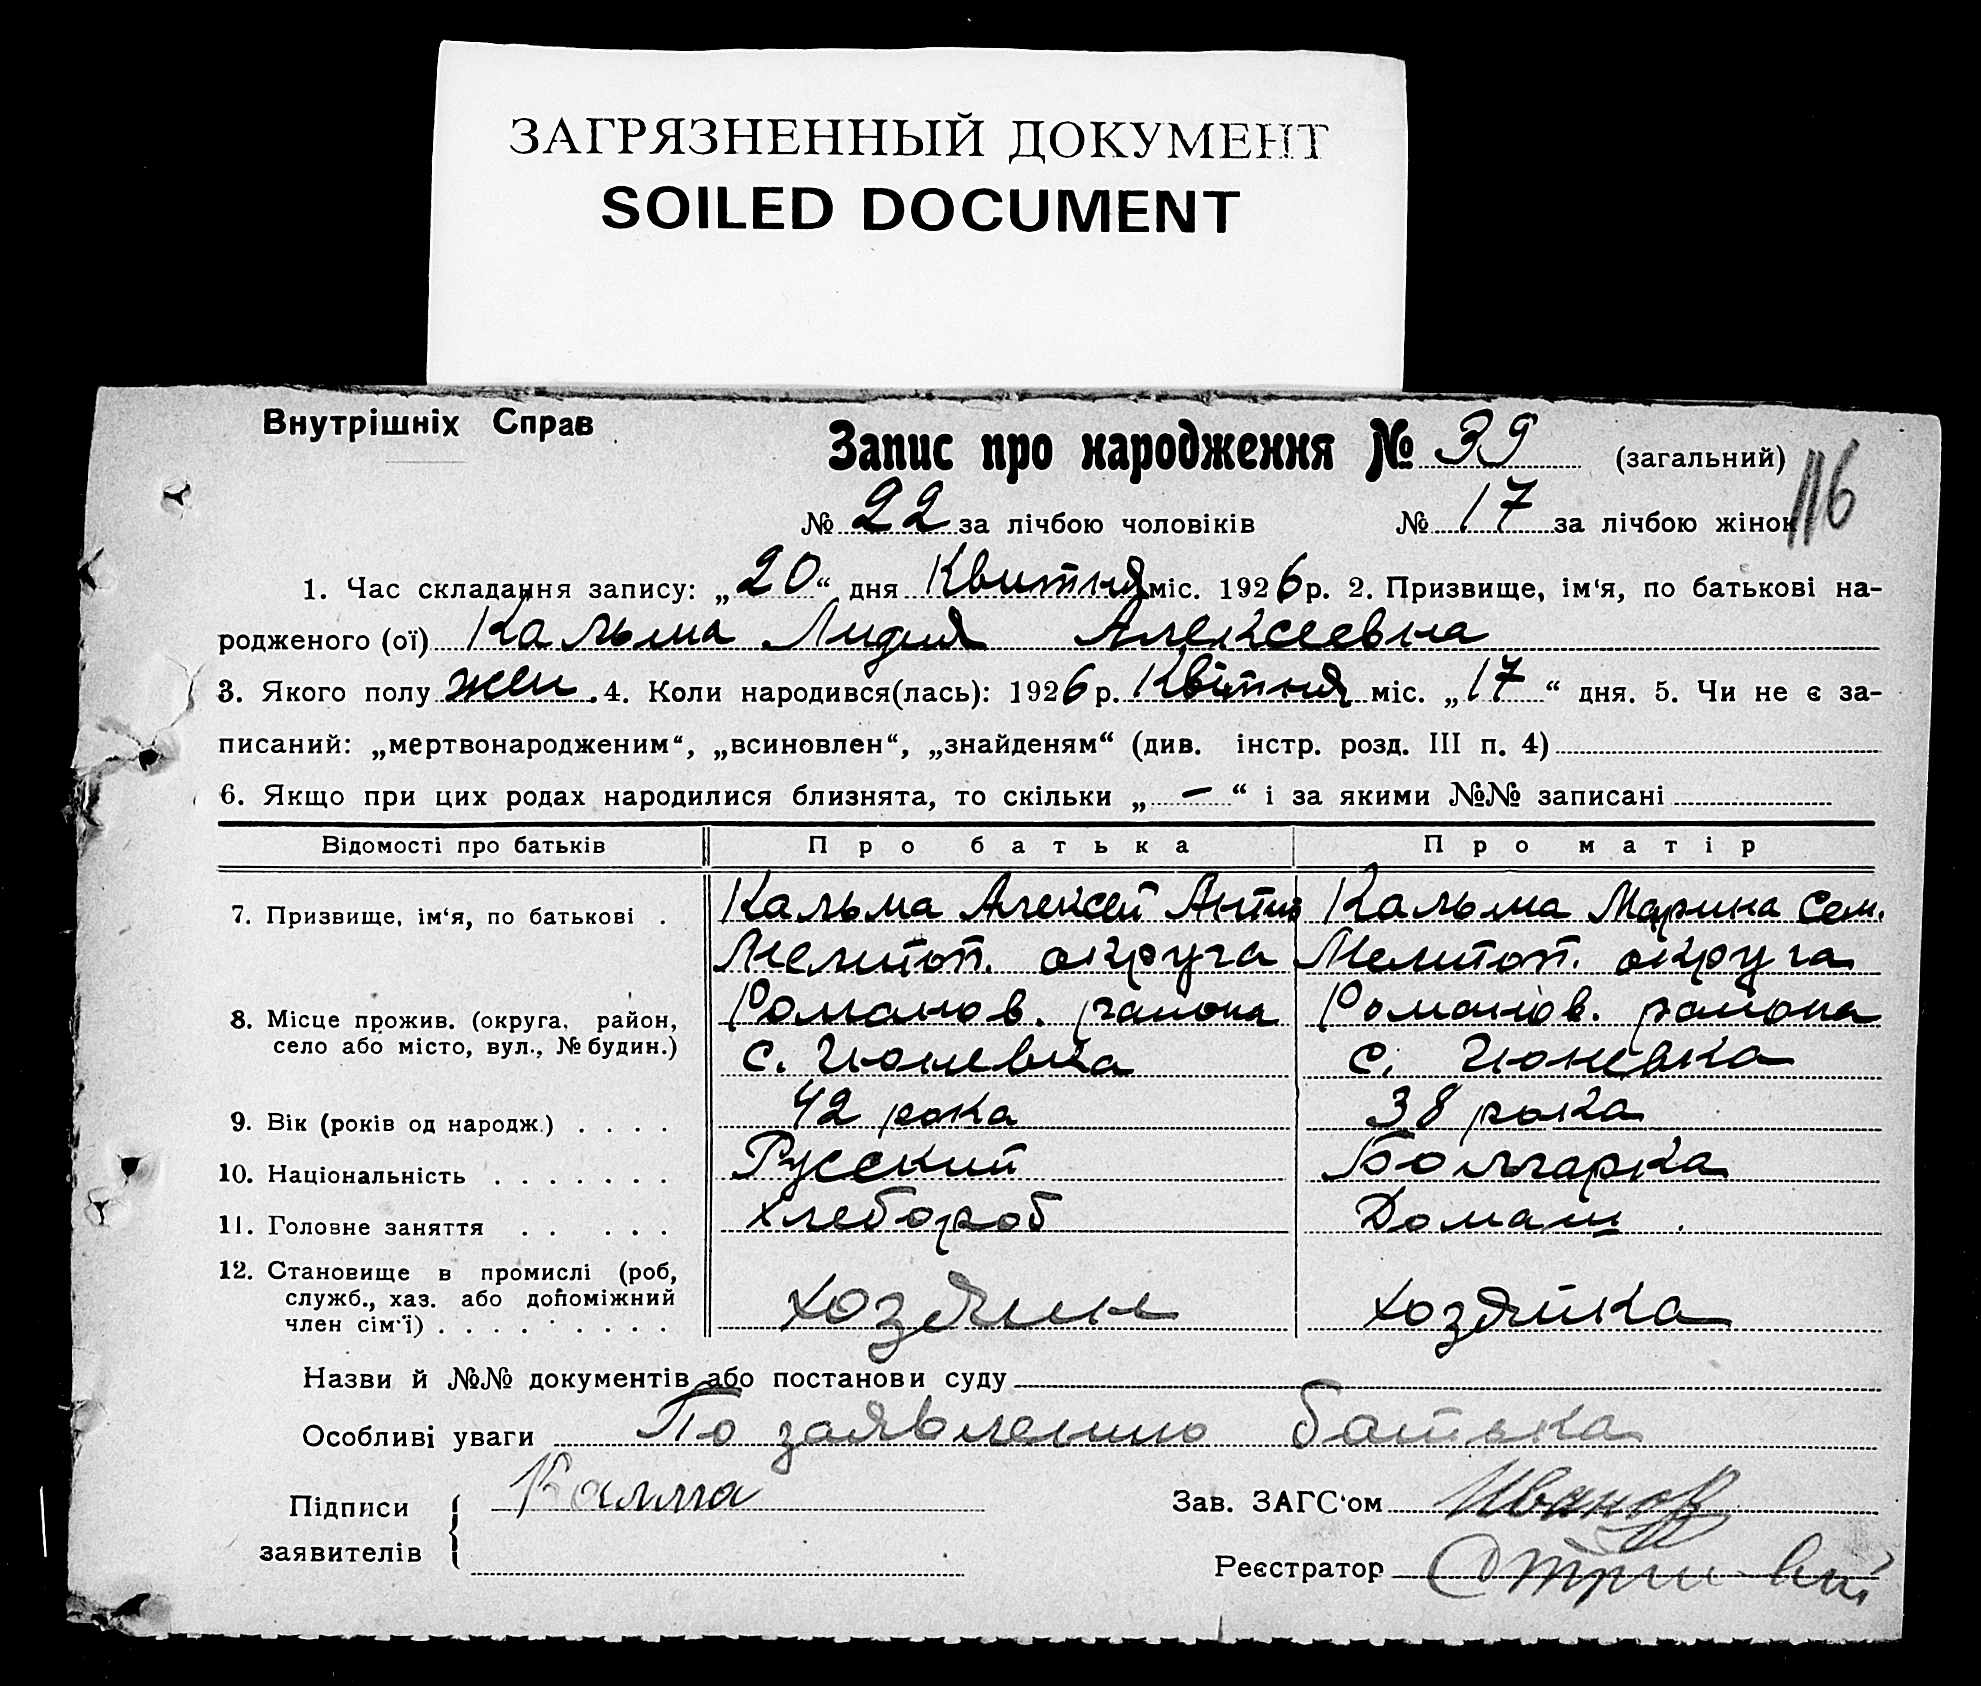 ЗАГРЯЗНЕННЫЙ ДОКУМЕНТ
SOILED DOCUMENT
Внутрішніх Справ
Запис про народження № 39 (загальний)
116
№ 22 за лічбою чоловіків № 17 за лічбою жінок
1. Час складання запису: „20“ дня Квитня міс. 1926 р. 2. Призвище, ім‘я, по батькові на-
родженого (ої) Кальма Лидия Алексеевна
3. Якого полу жен. 4. Коли народився(лась): 1926 р. Квітня міс. „17“ дня. 5. Чи не є за-
писаний: „мертвонародженим“, „всиновлен“, „знайденям“ (див. інстр. розд. III п. 4)
6. Якщо при цих родах народилися близнята, то скільки „ — “ і за якими №№ записані
Відомості про батьків Про батька Про матір
7. Призвище, ім‘я, по батькові . Кальма Алексей Антип Кальма Марина Сем.
Мелитоп. округа Мелитоп. округа
8. Місце прожив. (округа, район, Романов. района Романов. района
село або місто, вул., № будин.) с. Гюневка с. Гюневка
9. Вік (років од народж.) . . . . 42 рока 38 рока
10. Національність . . . . . . . Русский Болгарка
11. Головне заняття . . . . . Хлебороб Домаш.
12. Становище в промислі (роб,
служб., хаз. або допоміжний хозяин хозяйка
член сім‘ї) . . . . . . . . .
Назви й №№ документів або постанови суду
Особливі уваги По заявлению батька
Підписи Калма Зав. ЗАГС‘ом Иванов
заявителів
Реєстратор